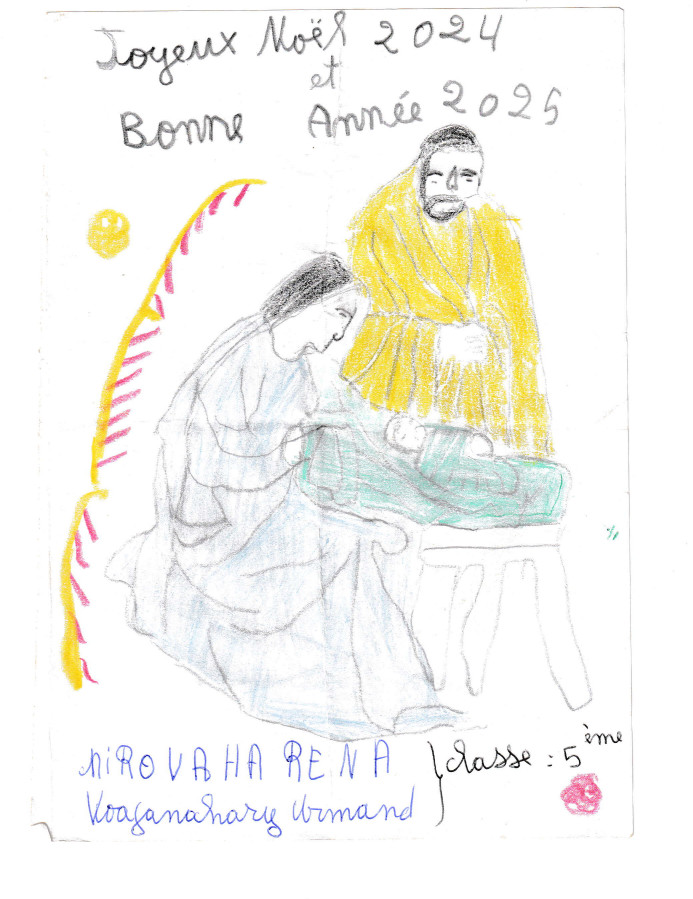 Joyeux Noël 2024
et
Bonne Année 2025
NIROVAHARENA
Voaganahary Armand
classe : 5ème